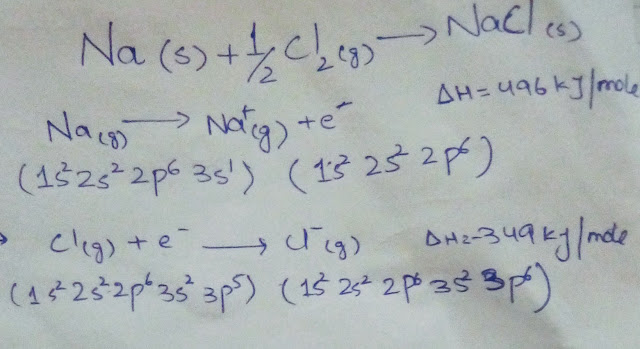 Na (s) + 1/2 Cl₂ (g) → NaCl (s)
ΔH = 496 kJ/mole
Na (g) → Na⁺(g) + e⁻
(1s² 2s² 2p⁶ 3s¹) (1s² 2s² 2p⁶)
Cl(g) + e⁻ → Cl⁻(g) ΔH = -349 kJ/mole
(1s² 2s² 2p⁶ 3s² 3p⁵) (1s² 2s² 2p⁶ 3s² 3p⁶)